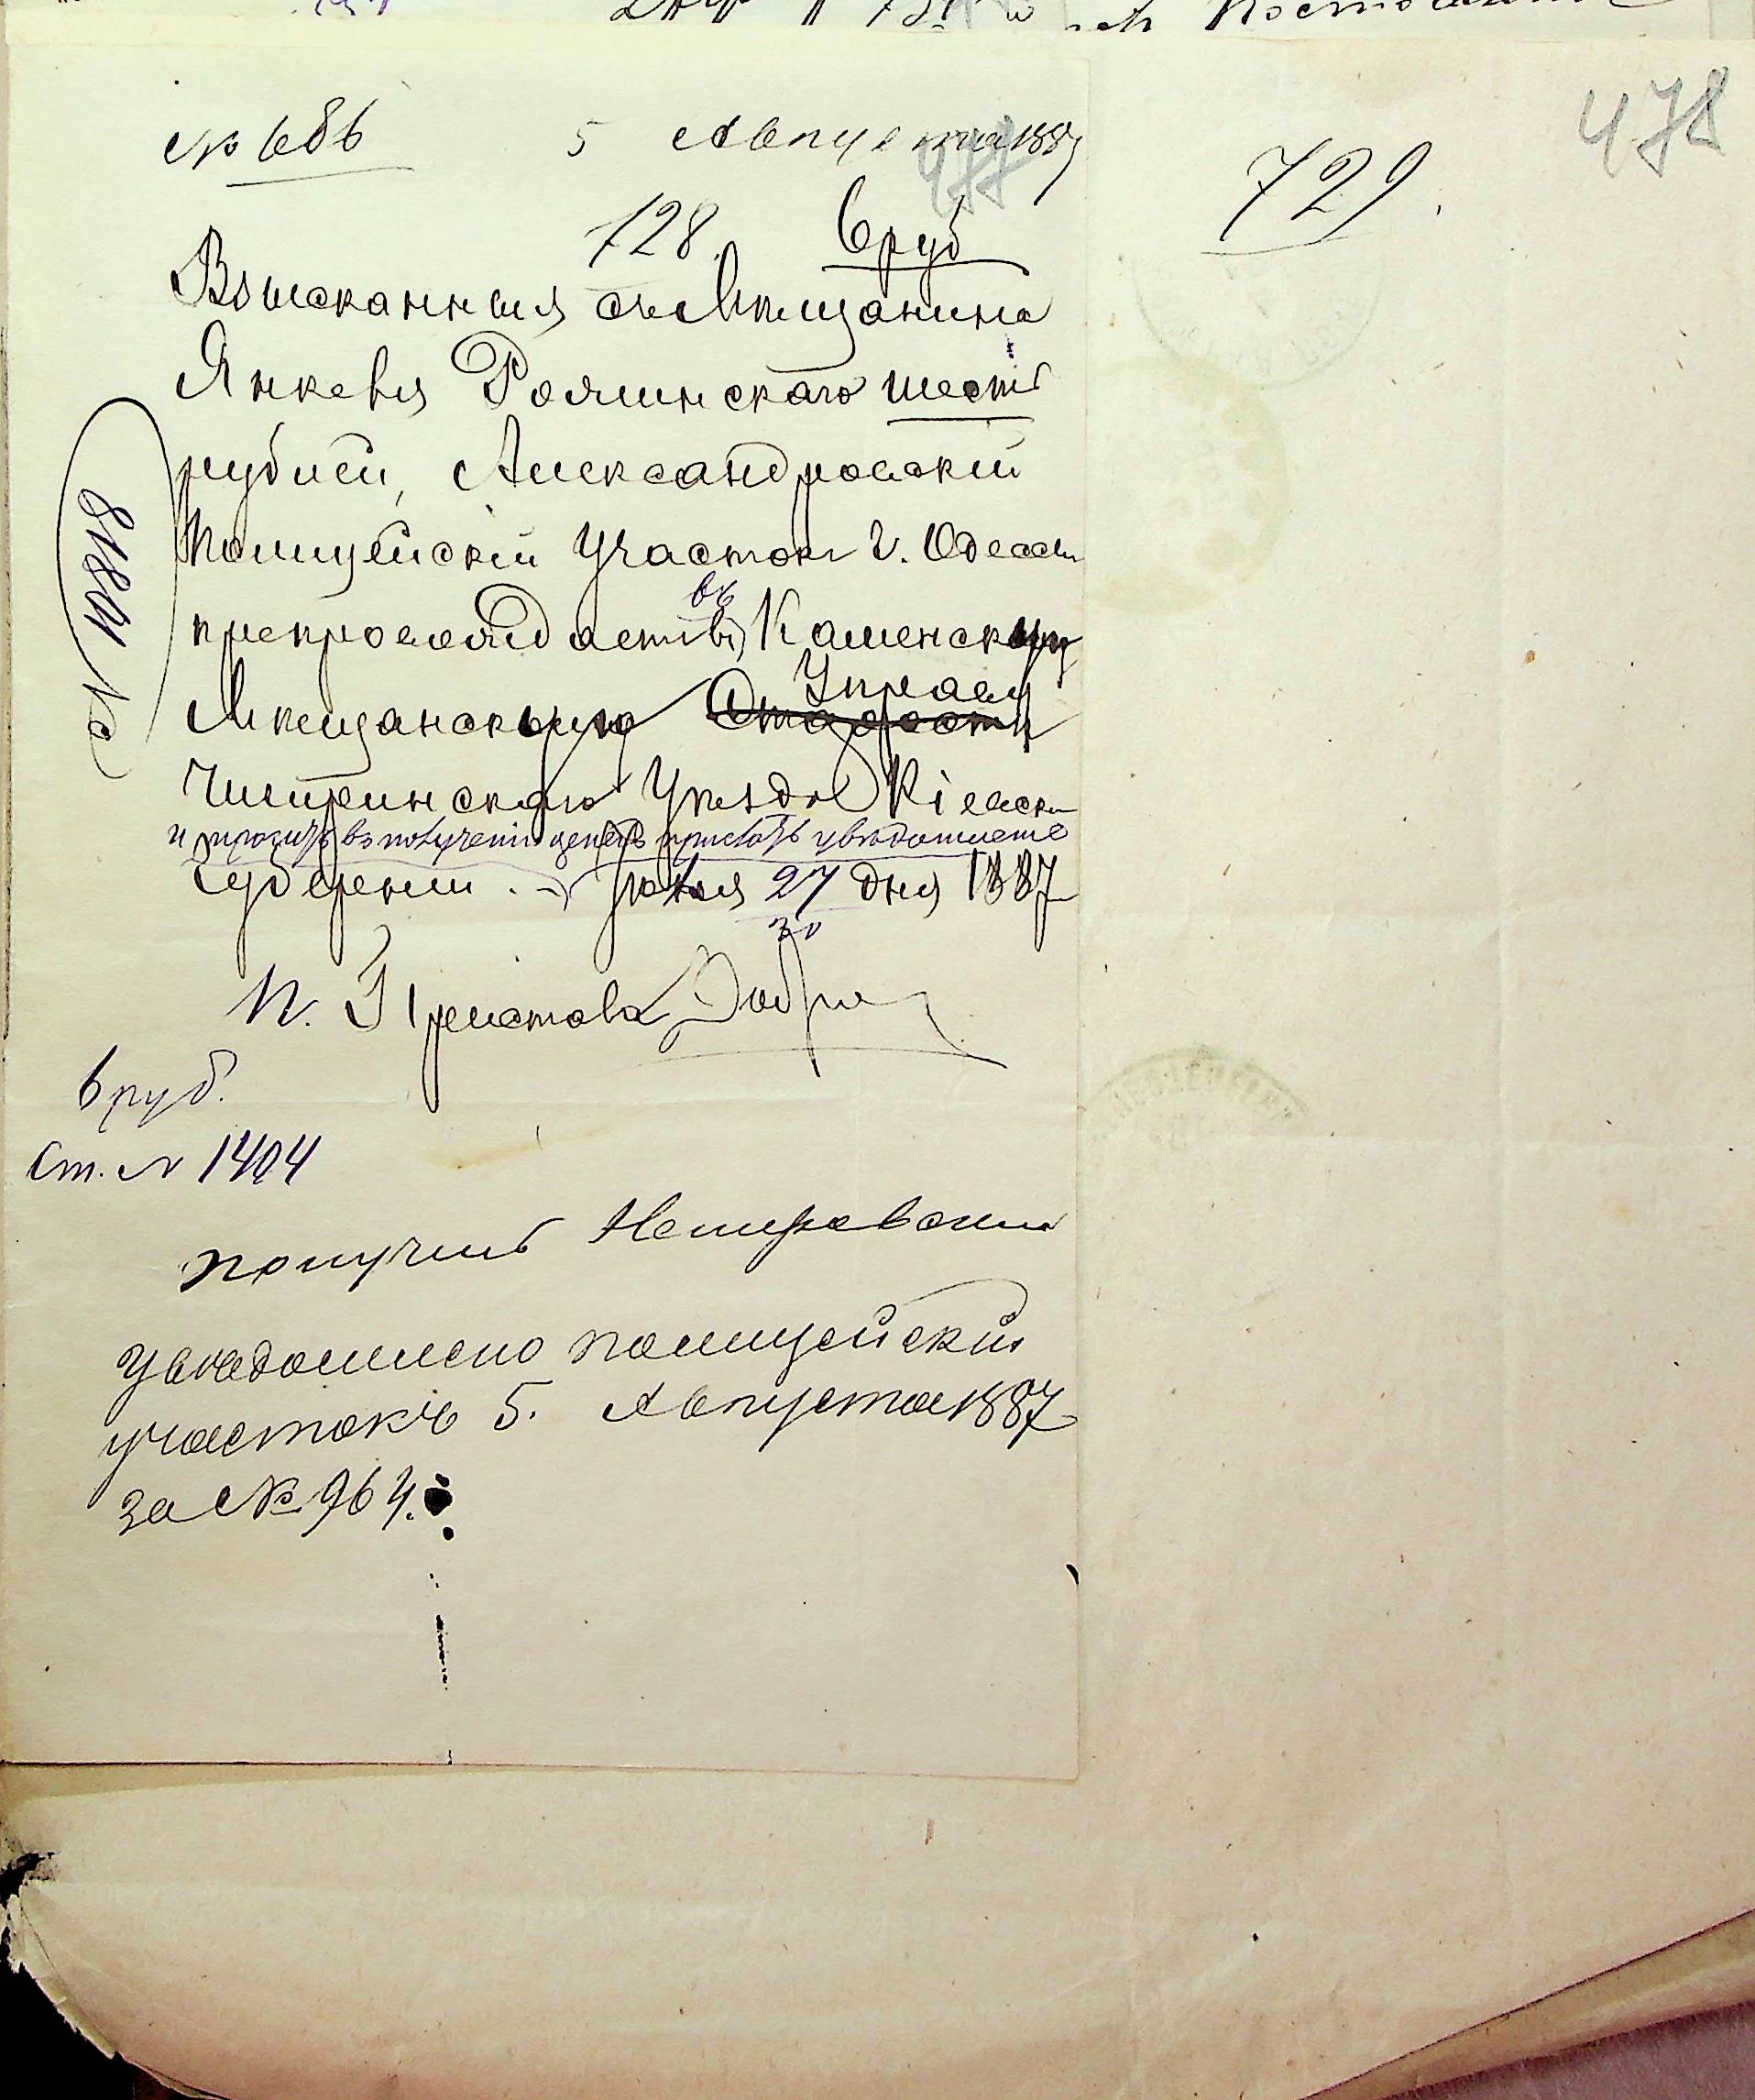 № 686 5 Августа 1887
478
477
729.
128. 6 руб
Взысканныя съ Мѣщанина
Янкеля шесть
рублей, Александровскій
Полицейскій Участокъ г. Одессы
препровождаетъ въ Каменскую
Мѣщанскую Управу
Чигиринскаго Уѣзда Кіевск
и проситъ въ полученіи денегъ прислать увѣдомленіе
Губерніи. Іюля 27 дня 1887
30
П. Пристава
№ 11818
6 руб.
Ст. № 1404
получилъ
увѣдомлено полицейскій
участокъ 5. Августа 1887
за № 964.